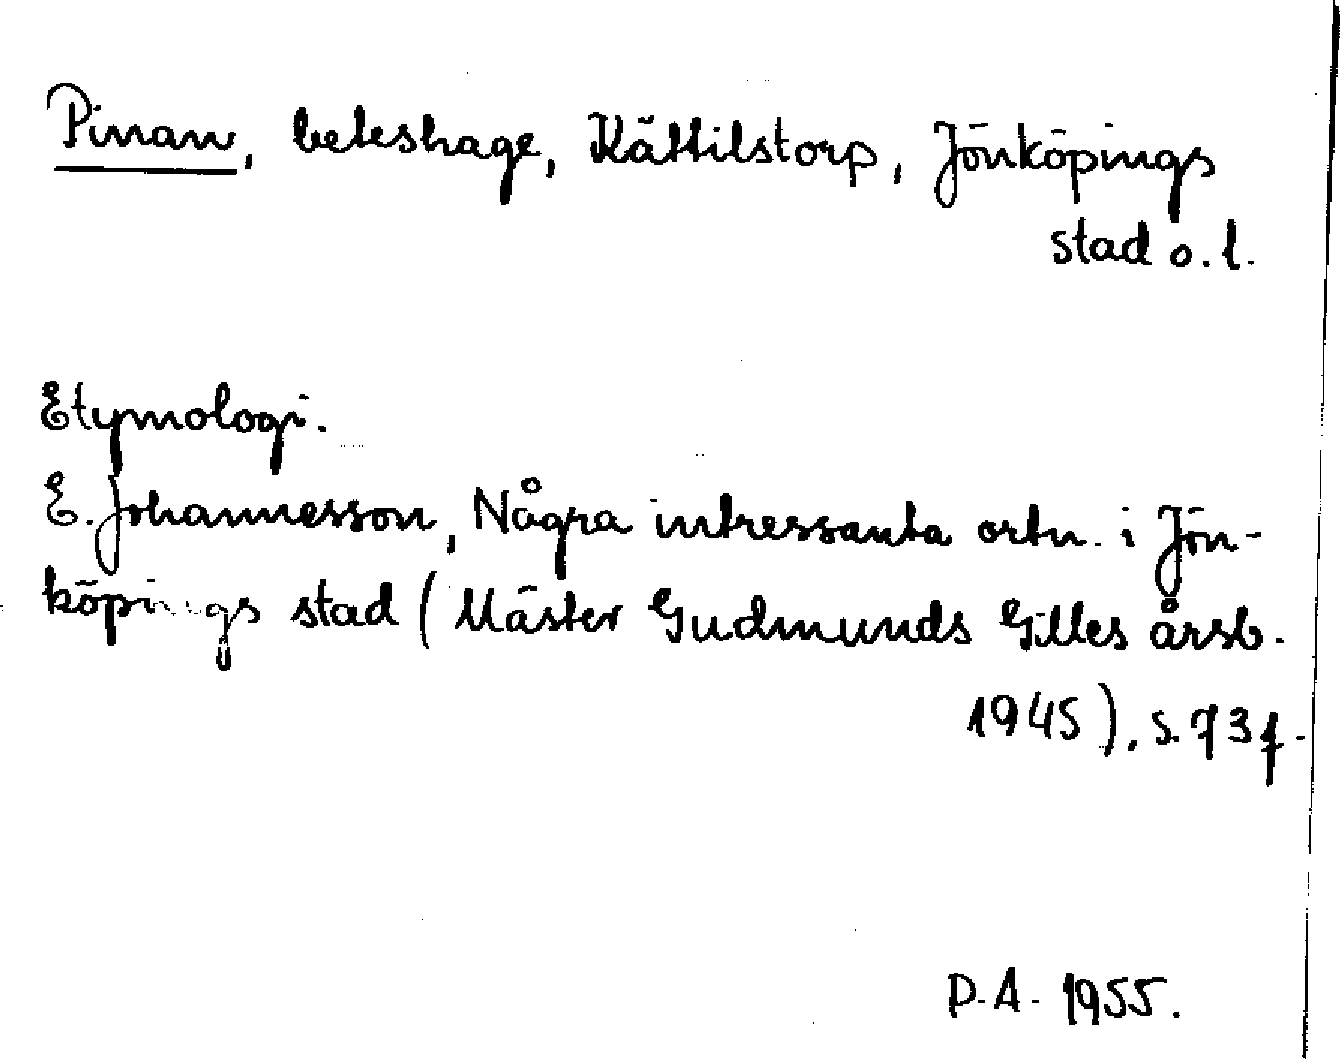 Pinan, beteshage, Kättilstorp, Jönköpings
stad o. l.
Etymologi.
E. Johannesson, Några intressanta ortn. i Jön-
köpings stad (Mäster Gudmunds Gilles årsb.
1945), s. 73 f.
P. A. 1955.